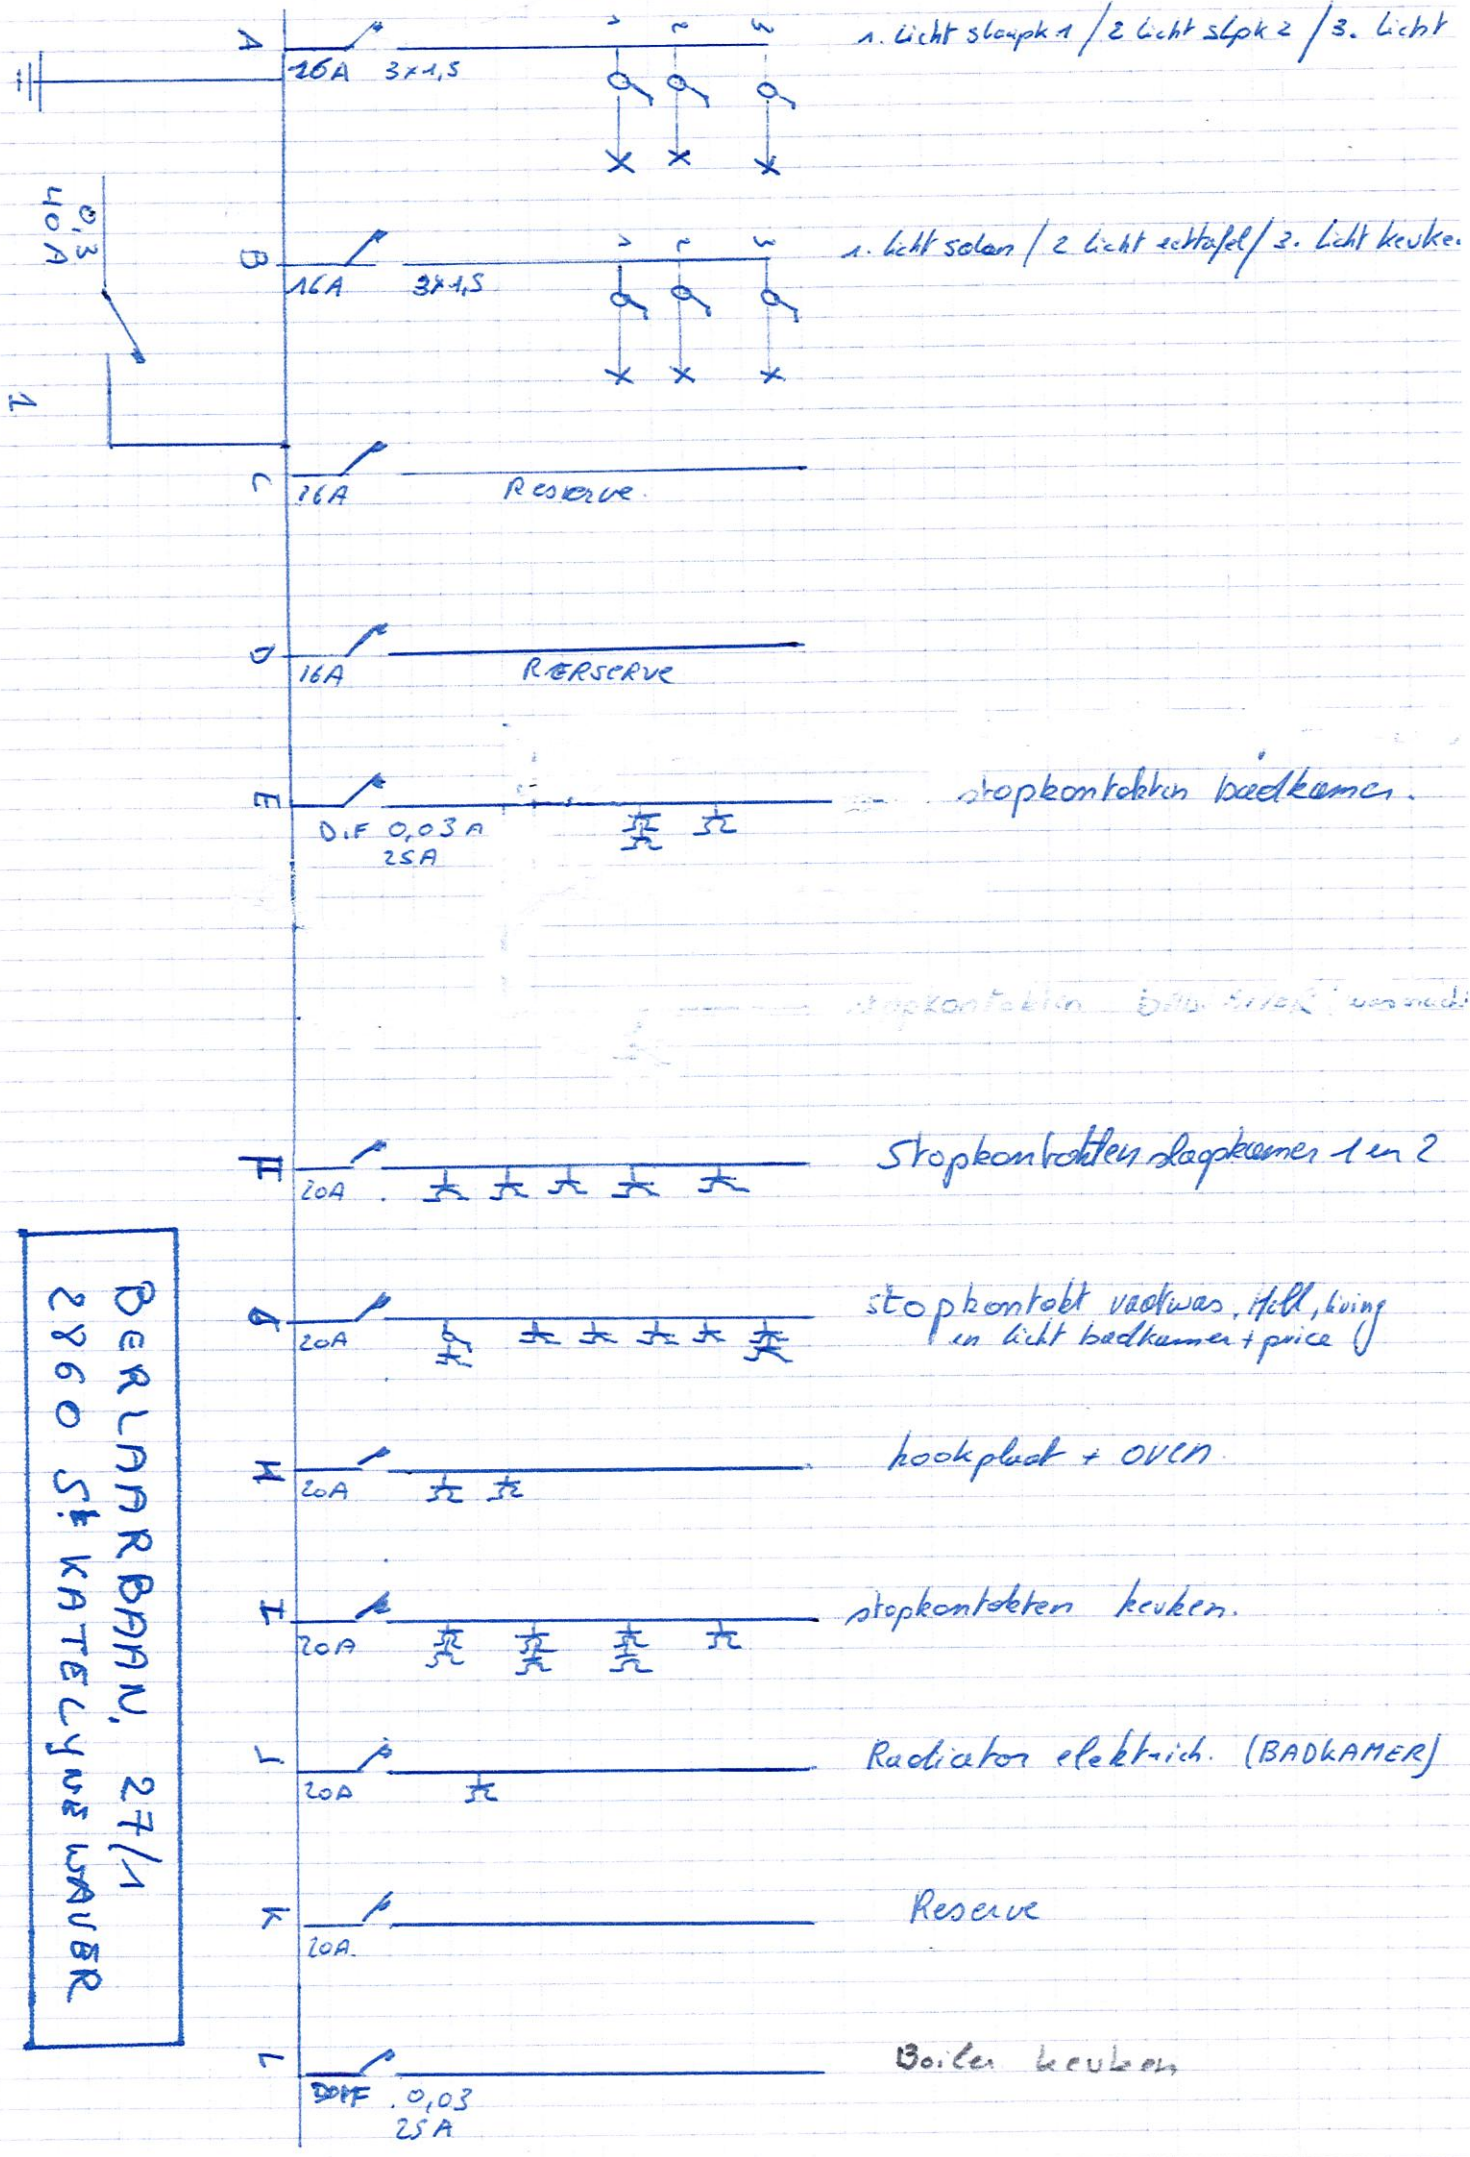 A
16A 3x1,5
1 2 3
1. Licht slaapk 1 / 2 Licht slpk 2 / 3. Licht
0,3
40A
B
16A 3x1,5
1 2 3
1. licht salon / 2 licht eettafel / 3. Licht keuke
1
C
16A Reserve.
D
16A RERSERVE
E
D.F 0,03A
25A
stopkontakten badkamer.
stopkontakten
F
20A
Stopkontakten slaapkamer 1 en 2
G
20A
stopkontakt vaatwas, Hall, living
en licht badkamer + price
H
20A
kookplaat + oven
I
20A
stopkontakten keuken.
J
20A
Radiator elektrich. (BADKAMER)
K
20A.
Reserve
L
0,03
25A
Boiler keuken
BERLAARBAAN, 27/1
2860 St KATELYNE WAVER